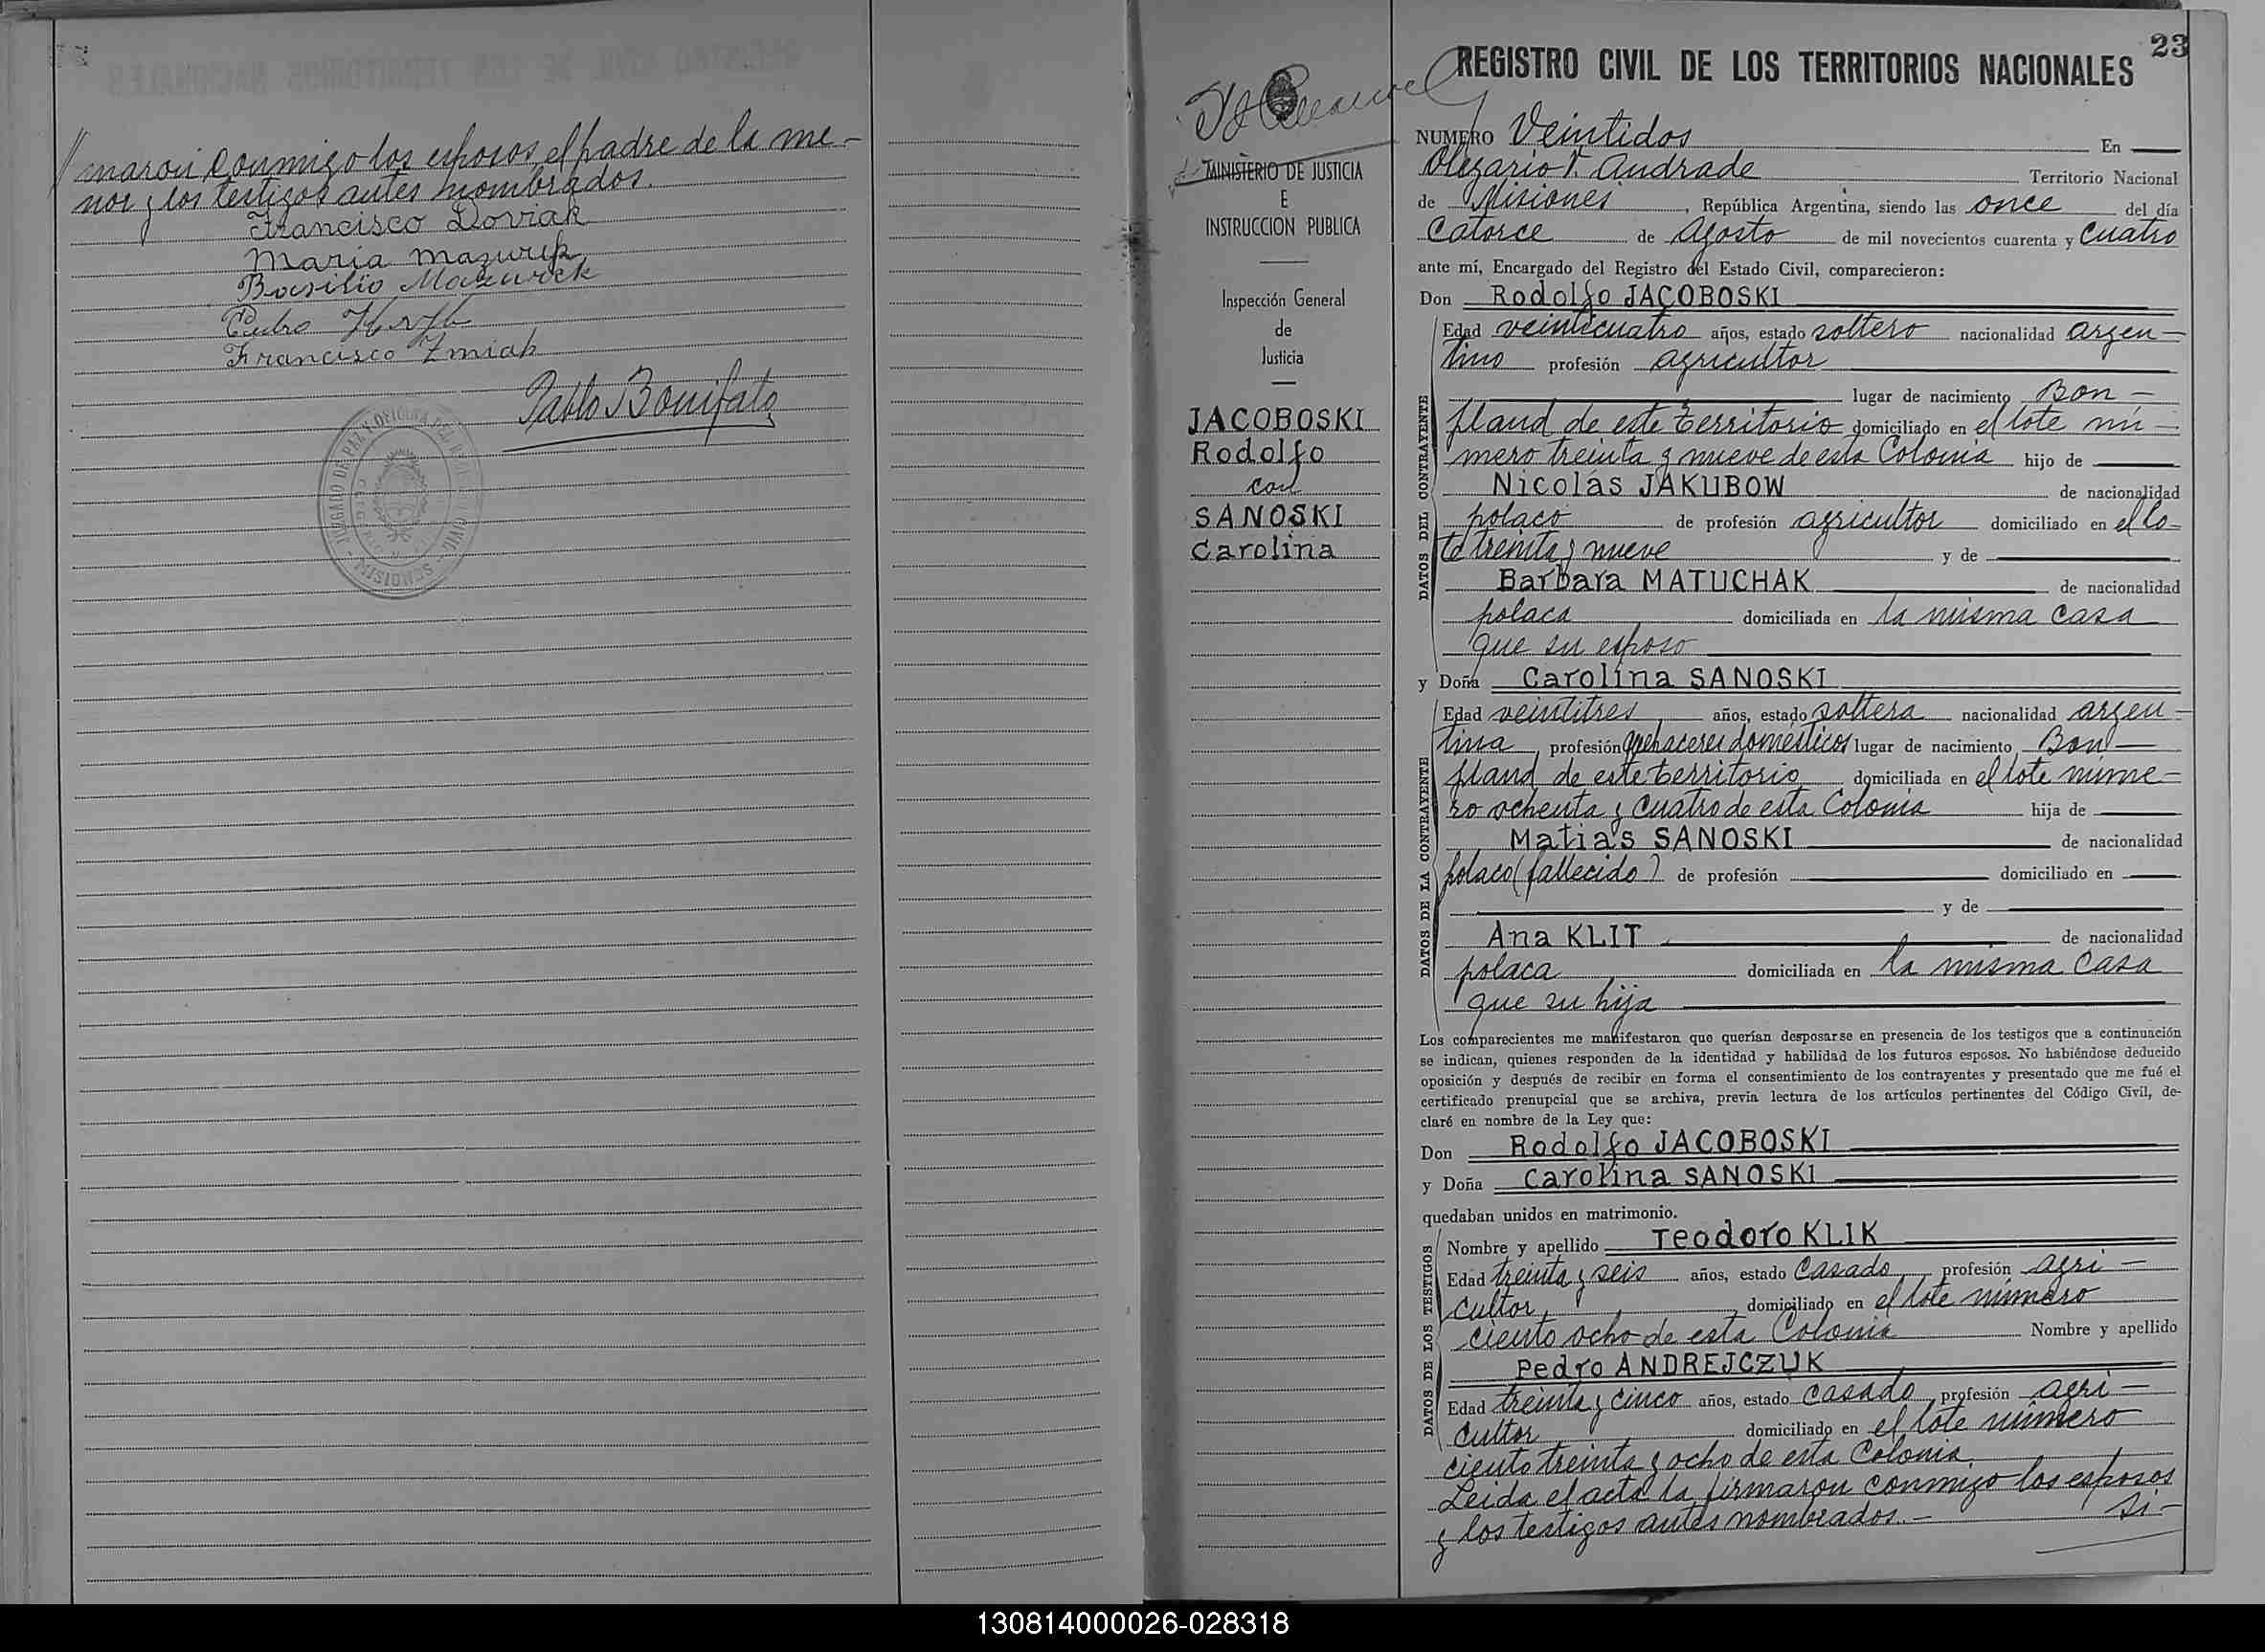 // maron conmigo los esposos, el padre de la me-
nor y los testigos antes nombrados.
Francisco Doviak
Maria Mazurek
Basilio Mazurek
Pedro
Francisco Zmiak
Pablo Bonifato
JUZGADO DE PAZ Y OFICINA
MISIONES
23
REGISTRO CIVIL DE LOS TERRITORIOS NACIONALES
MINISTERIO DE JUSTICIA
E
INSTRUCCION PUBLICA
Inspección General
de
Justicia
JACOBOSKI
Rodolfo
con
SANOSKI
Carolina
NUMERO Veintidos En
Olegario V. Andrade Territorio Nacional
de Misiones, República Argentina, siendo las once del día
Catorce de Agosto de mil novecientos cuarenta y Cuatro
ante mí, Encargado del Registro del Estado Civil, comparecieron:
Don Rodolfo JACOBOSKI
DATOS DEL CONTRAYENTE
Edad veinticuatro años, estado soltero nacionalidad argen-
tino profesión agricultor
lugar de nacimiento Bon-
pland de este territorio domiciliado en el lote nú-
mero treinta y nueve de esta Colonia hijo de
Nicolás JAKUBOW de nacionalidad
polaco de profesión agricultor domiciliado en el lo-
te treinta y nueve y de
Barbara MATUCHAK de nacionalidad
polaca domiciliada en la misma casa
que su esposo
y Doña Carolina SANOSKI
DATOS DE LA CONTRAYENTE
Edad veintitres años, estado soltera nacionalidad argen-
tina profesión Quehaceres domésticos lugar de nacimiento Bon-
pland de este territorio domiciliada en el lote núme-
ro ochenta y cuatro de esta Colonia hija de
Matias SANOSKI de nacionalidad
polaco (fallecido) de profesión domiciliado en
y de
Ana KLIT de nacionalidad
polaca domiciliada en la misma casa
que su hija
Los comparecientes me manifestaron que querían desposarse en presencia de los testigos que a continuación
se indican, quienes responden de la identidad y habilidad de los futuros esposos. No habiéndose deducido
oposición y después de recibir en forma el consentimiento de los contrayentes y presentado que me fué el
certificado prenupcial que se archiva, previa lectura de los artículos pertinentes del Código Civil, de-
claré en nombre de la Ley que:
Don Rodolfo JACOBOSKI
y Doña Carolina SANOSKI
quedaban unidos en matrimonio.
DATOS DE LOS TESTIGOS
Nombre y apellido Teodoro KLIK
Edad treinta y seis años, estado Casado profesión agri-
cultor, domiciliado en el lote número
ciento ocho de esta Colonia Nombre y apellido
Pedro ANDREJCZUK
Edad treinta y cinco años, estado Casado profesión agri-
cultor domiciliado en el lote número
ciento treinta y ocho de esta Colonia.
Leida el acta la firmaron conmigo los esposos
y los testigos antes nombrados.- Si-
130814000026-028318